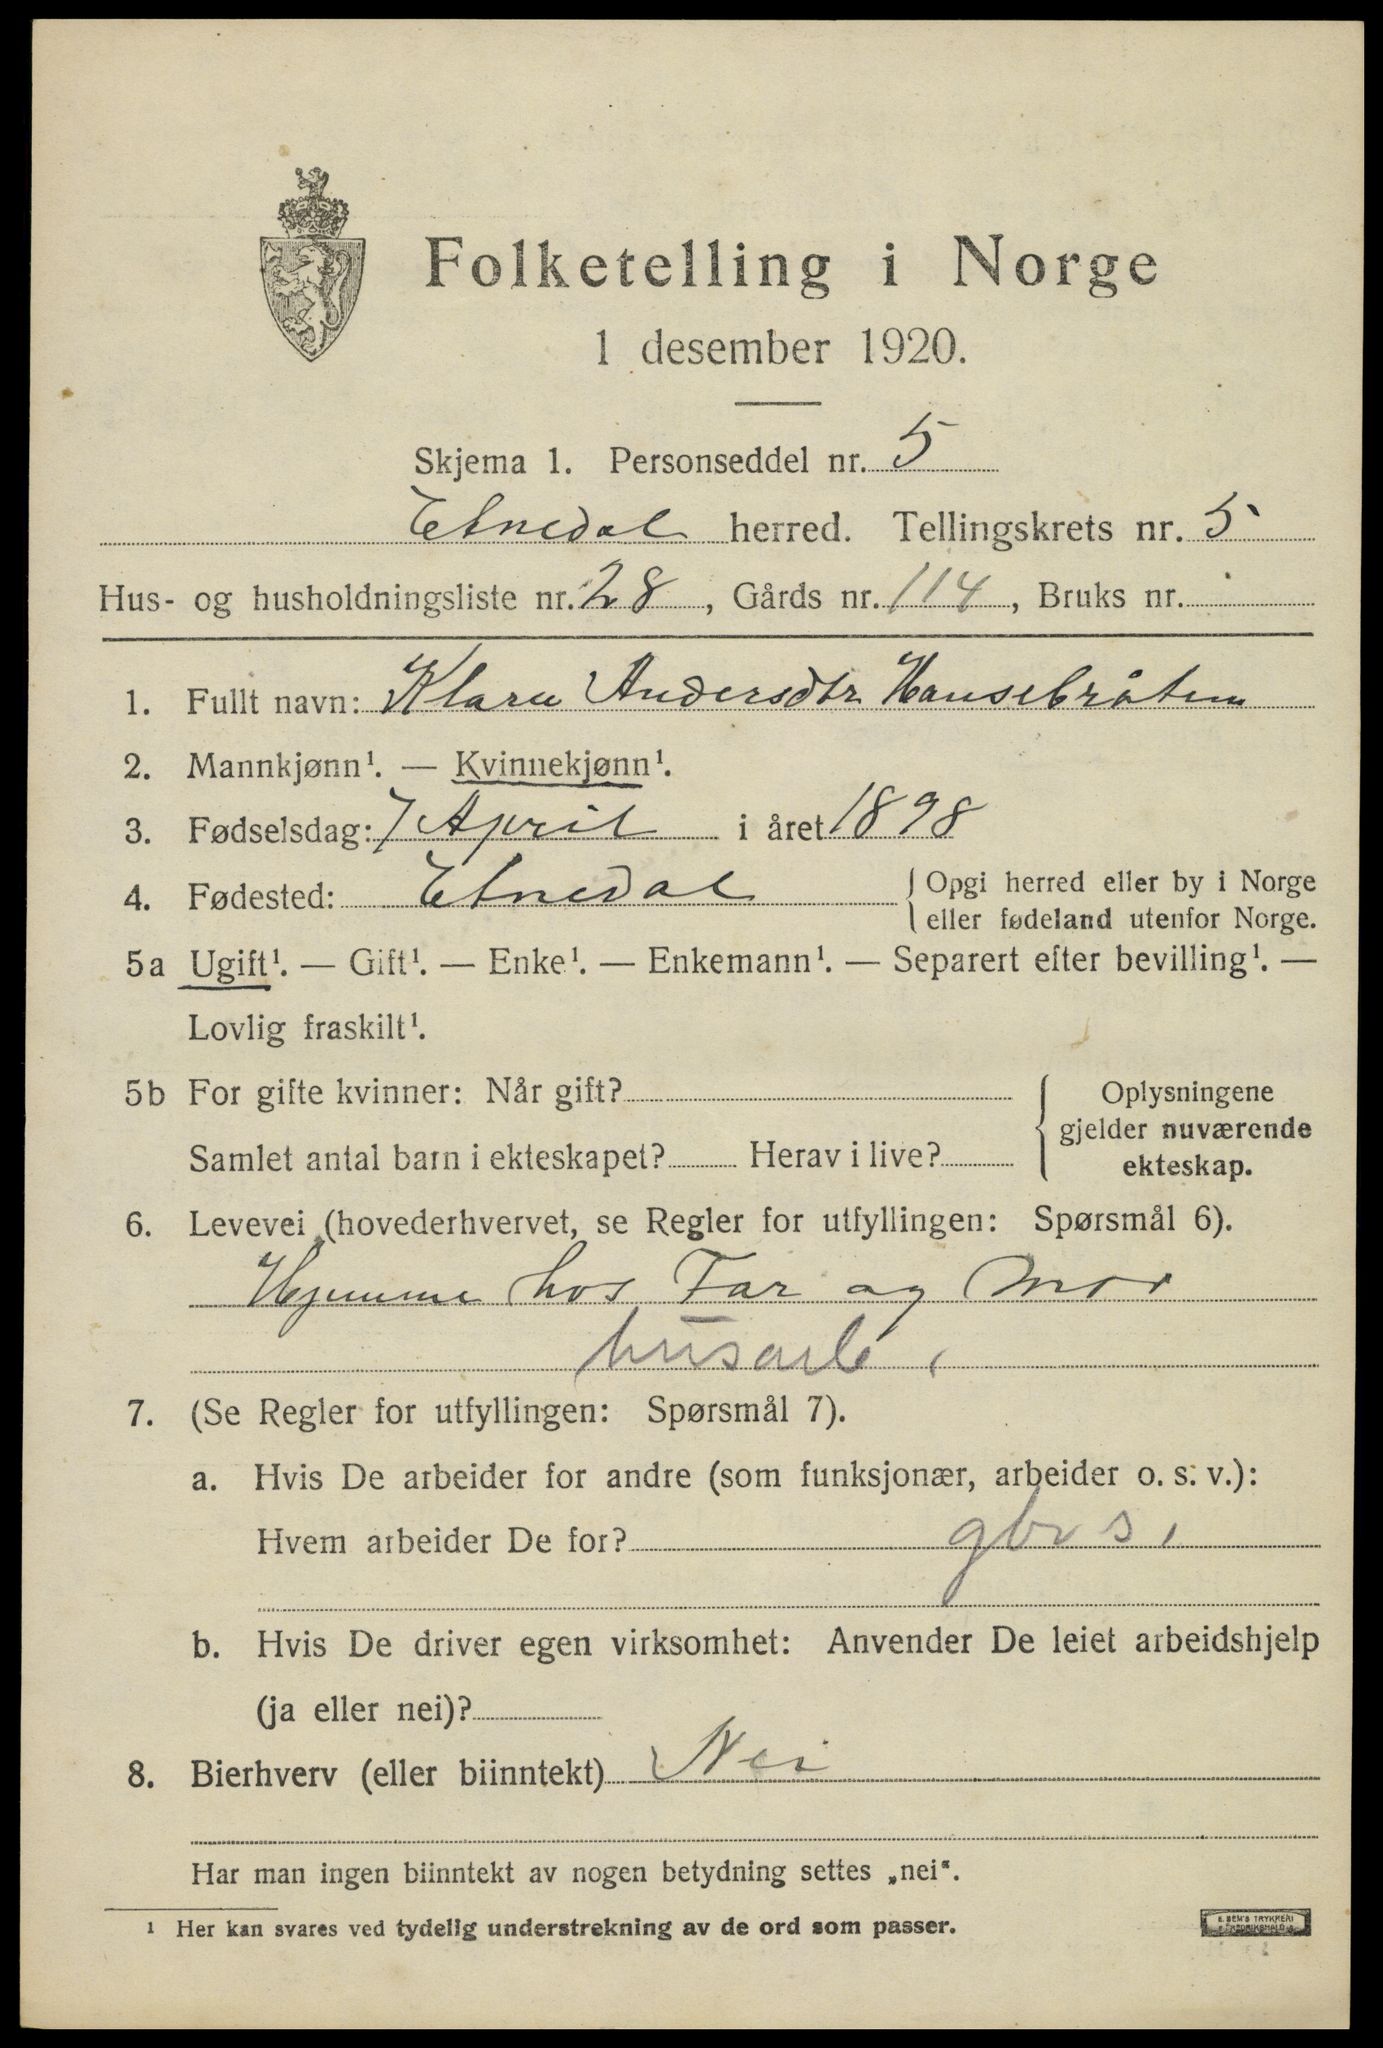 Folketelling i Norge
1 desember 1920.
Skjema 1. Personseddel nr. 5
Etnedal herred. Tellingskrets nr. 5
Hus- og husholdningsliste nr. 28, Gårds nr. 114, Bruks nr.
1. Fullt navn: Klara Andersdtr Hansebråten
2. Mannkjønn¹. — Kvinnekjønn¹.
3. Fødselsdag: 7 April i året 1898
4. Fødested: Etnedal { Opgi herred eller by i Norge
eller fødeland utenfor Norge.
5a Ugift¹. — Gift¹. — Enke¹. — Enkemann¹. — Separert efter bevilling¹. —
Lovlig fraskilt¹.
5b For gifte kvinner: Når gift?
Samlet antal barn i ekteskapet? Herav i live?
{ Oplysningene
gjelder nuværende
ekteskap.
6. Levevei (hovederhvervet, se Regler for utfyllingen: Spørsmål 6).
Hjemme hos Far og Mor
husarb.
7. (Se Regler for utfyllingen: Spørsmål 7).
a. Hvis De arbeider for andre (som funksjonær, arbeider o. s. v.):
Hvem arbeider De for? gbr s.
b. Hvis De driver egen virksomhet: Anvender De leiet arbeidshjelp
(ja eller nei)?
8. Bierhverv (eller biinntekt) Nei
Har man ingen biinntekt av nogen betydning settes „nei“.
¹ Her kan svares ved tydelig understrekning av de ord som passer.
E. SEM'S TRYKKERI
FREDRIKSHALD